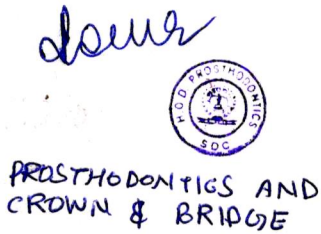 H.O.D PROSTHODONTICS
SDC
PROSTHODONTICS AND
CROWN & BRIDGE